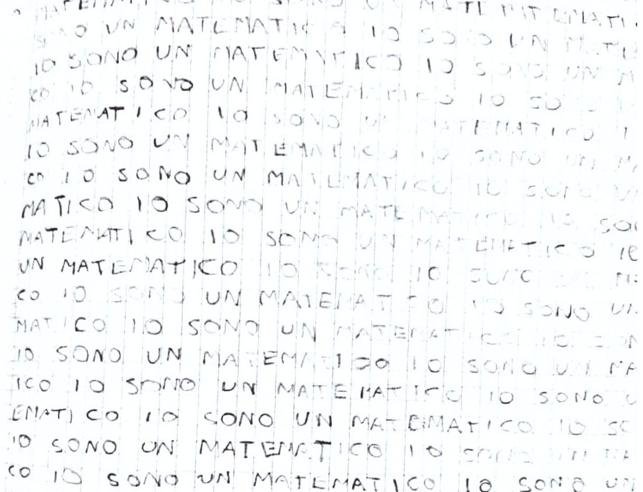 UN MATEMATI
UN MATEMATICO IO SONO UN MATE
IO SONO UN MATEMATICO IO SONO UN M
CO IO SONO UN MATEMATICO IO SO
MATEMATICO IO SONO UN MATEMATICO I
IO SONO UN MATEMATICO IO SONO UN MA
CO IO SONO UN MATEMATICO IO SONO UN
MATICO IO SONO UN MATEMATICO IO SO
MATEMATICO IO SONO UN MATEMATICO IO
UN MATEMATICO IO SONO IO SONO UN
CO IO SONO UN MATEMATICO IO SONO UN
MATICO IO SONO UN MATEMATICO IO SON
IO SONO UN MATEMATICO IO SONO UN MA
ICO IO SONO UN MATEMATICO IO SONO U
EMATICO IO SONO UN MATEMATICO IO SO
IO SONO UN MATEMATICO IO SONO UN MA
CO IO SONO UN MATEMATICO IO SONO UN